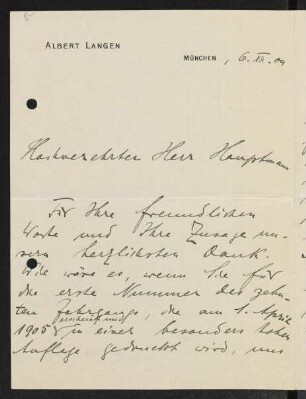 ALBERT LANGEN
MÜNCHEN, 6. XII. 04
Hochverehrter Herr Hauptmann
Für Ihre freundlichen
Worte und Ihre Zusage un-
sern herzlichsten Dank.
Wie wäre es, wenn Sie für
die erste Nummer des zehn-
ten Jahrgangs, die am 1. April
1905 erscheint und in einer besonders hohen
Auflage gedruckt wird, uns